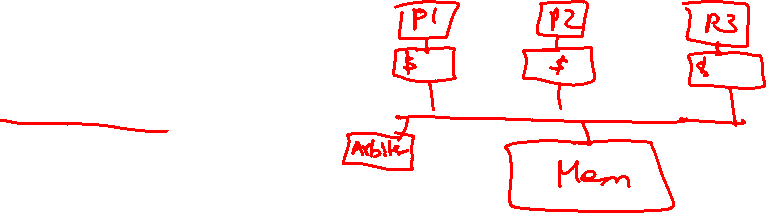 P1 P2 P3
$ $ $
Arbite
Mem